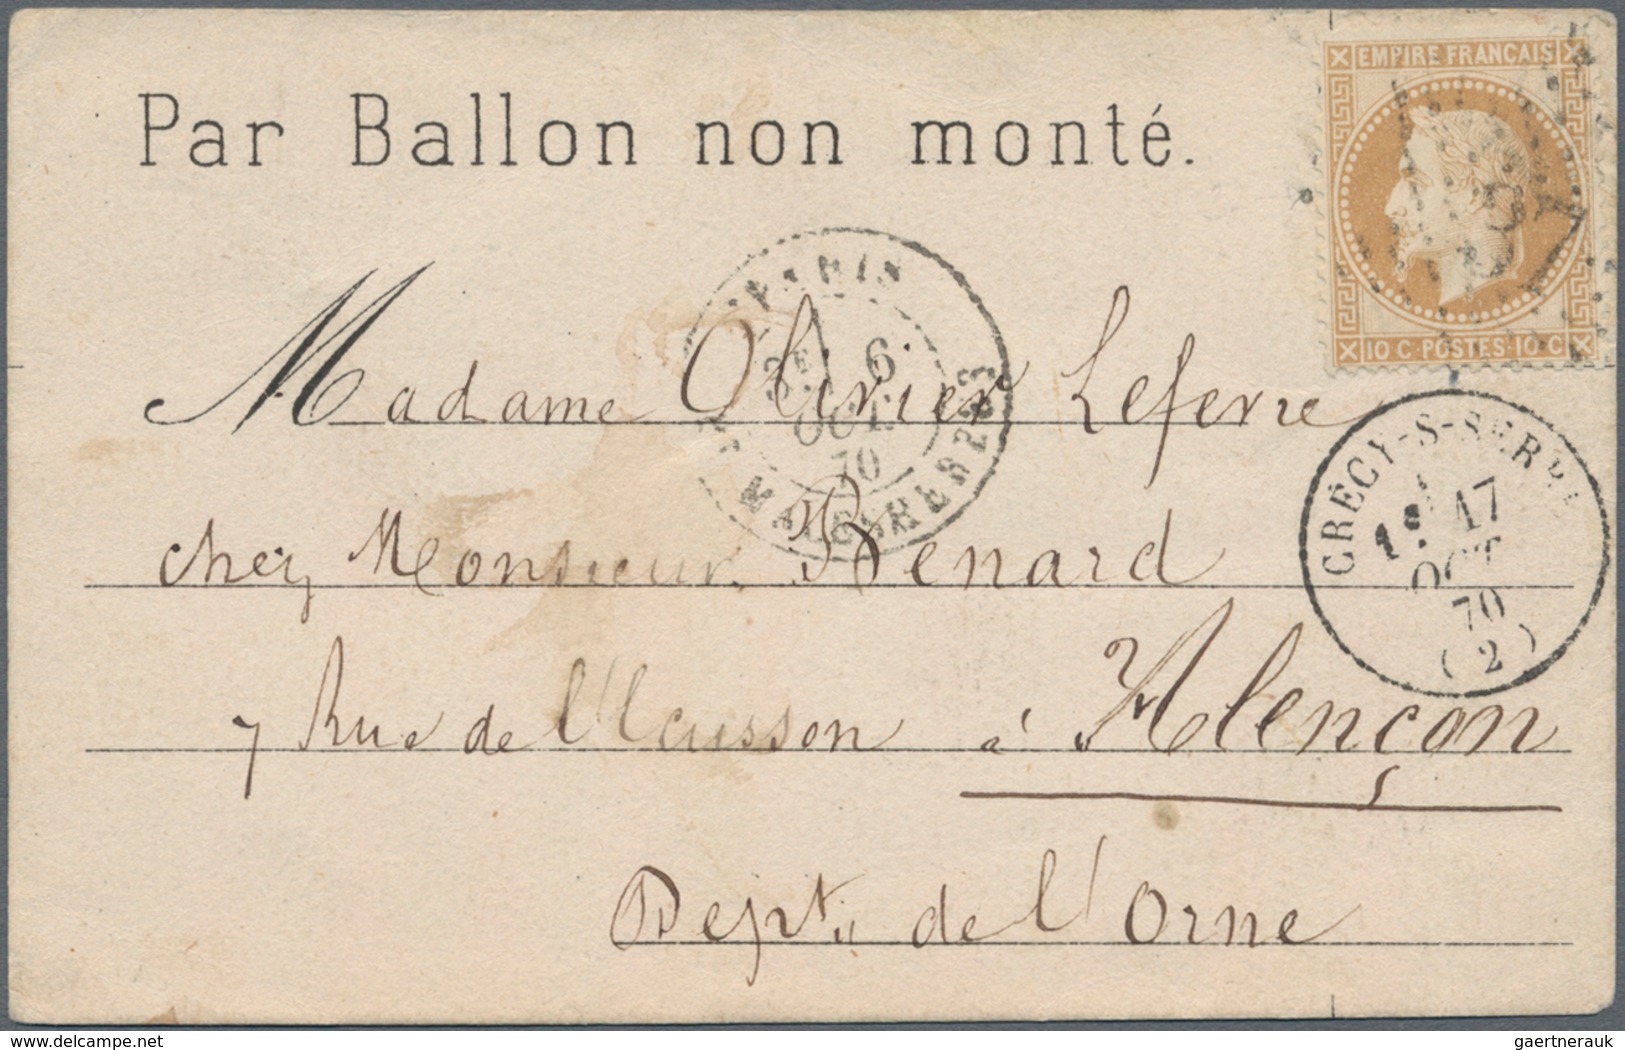 EMPIRE FRANÇAIS
Par Ballon non monté.
10 C · POSTES · 10 C
PARIS
3E 6
OCT.
70
MALESHERBES
Madame Olivier Lefevre
CRÉCY-S-SERRE
17
OCT
70
(2)
chez Monsieur Renard
7 Rue de l'Ecusson à Alençon
Dept. de l'Orne
delcampe.net
gaertnerauk